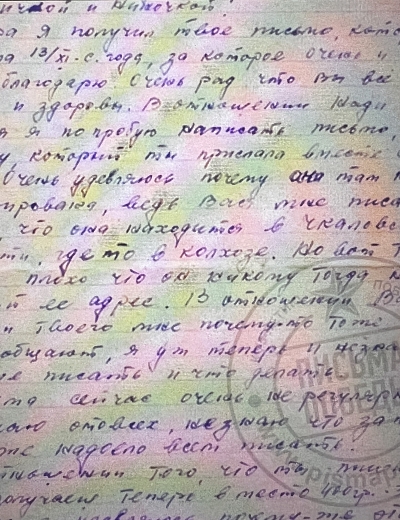 и Ниночкой
я получил твое письмо, кото
13/XI - с. года, за которое очень и
благодарю. Очень рад что вы все
и здоровы. В отношении Нади
я попробую написать письмо,
который ты прислала вместе
Очень удивляюсь почему она там
ирована, ведь Вас мне писа
что она находится в Чкаловс
сти, где то в колхозе. Но вот
плохо что он никому тогда
ее адрес. В отношении В
и твоего мне почему-то тоже
общают, я уж теперь и незна
писать и что делать
сейчас очень не регулярн
от всех, незнаю что
надоело всем писать.
отношении того, что ты
получаем теперь вместо 400гр.
почему-то
ПИСЬМА
ПОБЕДЫ